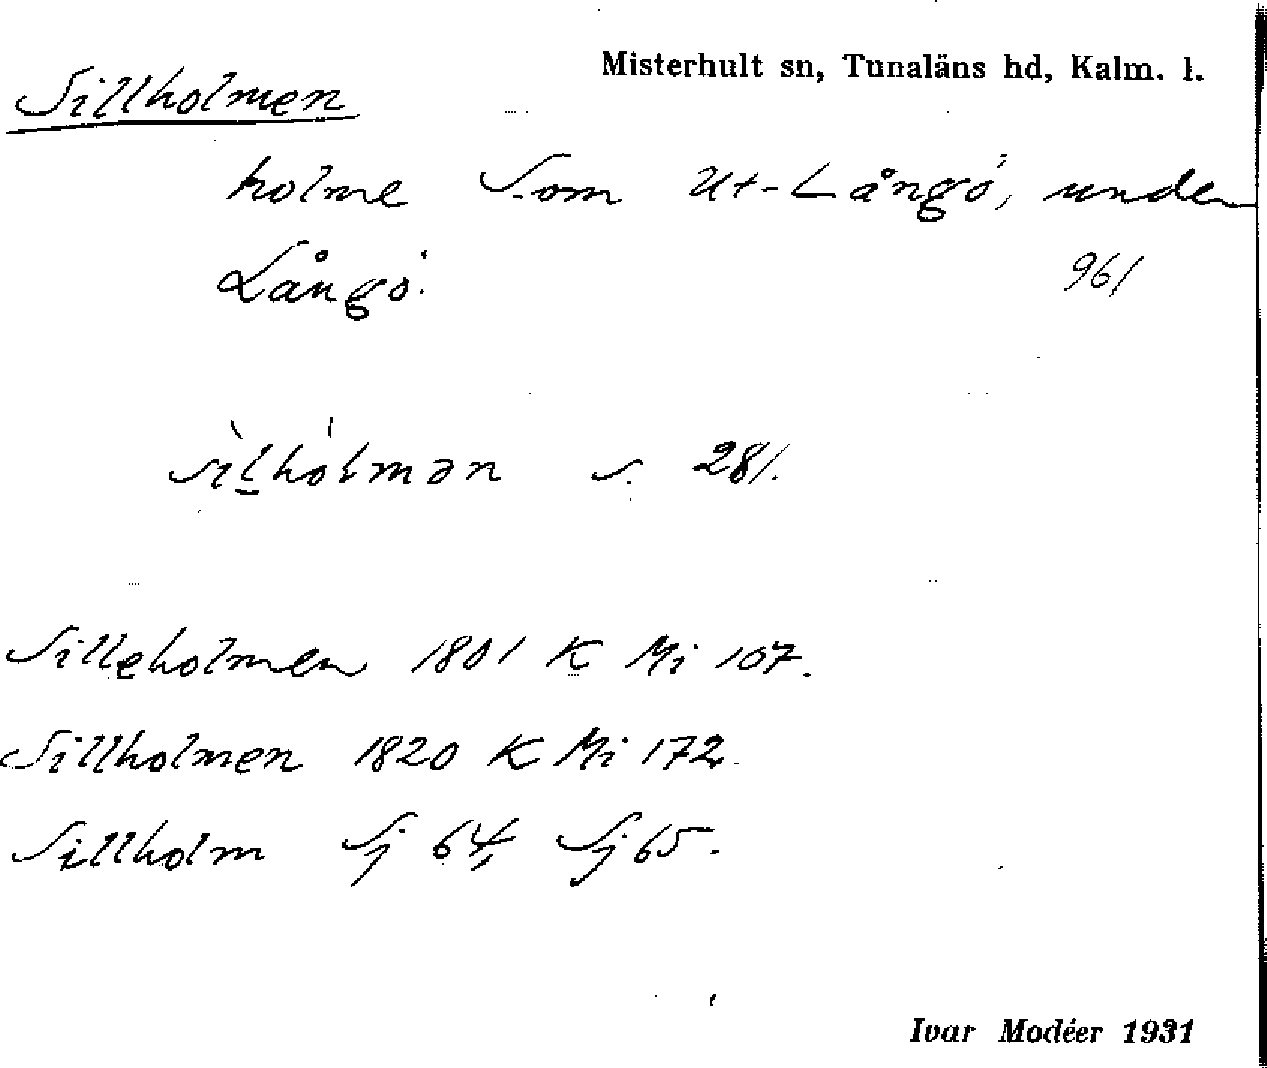 Misterhult sn, Tunaläns hd, Kalm. l.
Sillholmen
holme S om Ut-Långö, under
Långö. 961
sìlhólmən s. 281.
Silleholmen 1801 K Mi 107.
Sillholmen 1820 K Mi 172.
Sillholm Sj 64, Sj 65.
Ivar Modéer 1931